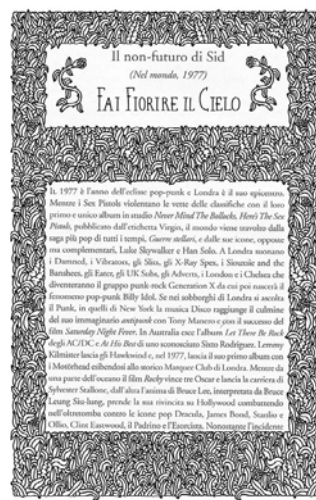 Il non-futuro di Sid
(Nel mondo, 1977)
FAI FIORIRE IL CIELO
IL 1977 è l'anno dell'eclisse pop-punk e Londra è il suo epicentro.
Mentre i Sex Pistols violentano le vette delle classifiche con il loro
primo e unico album in studio Never Mind The Bollocks, Here's The Sex
Pistols, pubblicato dall'etichetta Virgin, il mondo viene stravolto dalla
saga più pop di tutti i tempi, Guerre stellari, e dalle sue icone, opposte
ma complementari, Luke Skywalker e Han Solo. A Londra suonano
i Damned, i Vibrators, gli Slits, gli X-Ray Spex, i Siouxsie and the
Banshees, gli Eater, gli UK Subs, gli Adverts, i London e i Chelsea che
diventeranno il gruppo punk-rock Generation X da cui poi nascerà il
fenomeno pop-punk Billy Idol. Se nei sobborghi di Londra si ascolta
il Punk, in quelli di New York la musica Disco raggiunge il culmine
del suo immaginario antipunk con Tony Manero e con il successo del
film Saturday Night Fever. In Australia esce l'album Let There Be Rock
degli AC/DC e At His Best di uno sconosciuto Sixto Rodriguez. Lemmy
Kilmister lascia gli Hawkwind e, nel 1977, lancia il suo primo album con
i Motörhead esibendosi allo storico Marquee Club di Londra. Mentre da
una parte dell'oceano il film Rocky vince tre Oscar e lancia la carriera di
Sylvester Stallone, dall'altra l'anima di Bruce Lee, interpretata da Bruce
Leung Siu-lung, prende la sua rivincita su Hollywood combattendo
nell'oltretomba contro le icone pop Dracula, James Bond, Stanlio e
Ollio, Clint Eastwood, il Padrino e l'Esorcista. Nonostante l'incidente